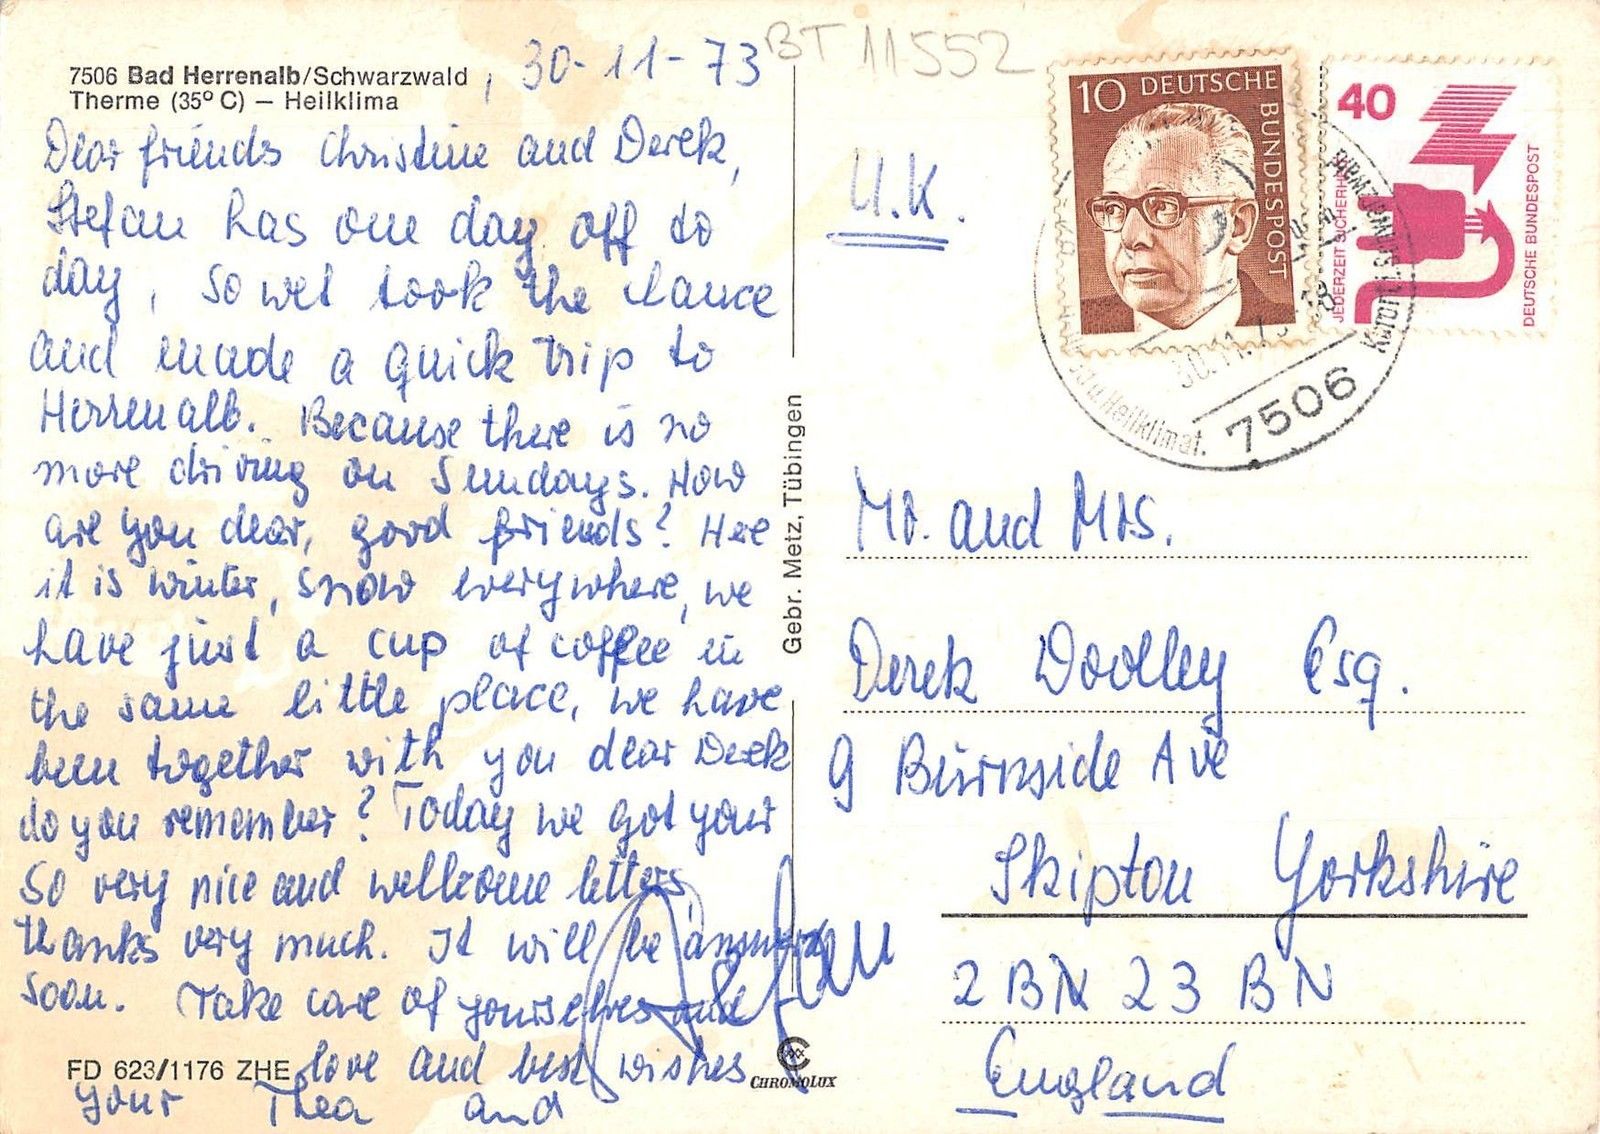 7506 Bad Herrenalb/Schwarzwald
Therme (35° C) – Heilklima
, 30-11-73
Dear friends Christine and Derek,
Stefan has one day off to
day, so wet took the chance
and made a quick trip to
Herrenalb. Because there is no
more driving on Sundays. How
are you dear, good friends? Here
it is winter, snow everywhere, we
have just a cup of coffee in
the same little place, we have
been together with you dear Derek
do you remember? Today we got your
so very nice and wellcome letters,
thanks very much. It will be answered
soon. Take care of yourselves and
love and best wishes
your Thea and
Stefan
FD 623/1176 ZHE
Gebr. Metz, Tübingen
CHROMOLUX
BT 11552
U.K.
10 DEUTSCHE BUNDESPOST
40
JEDERZEIT SICHERHEIT
DEUTSCHE BUNDESPOST
30.11.73
7506
Heilklimat.
Mr. and Mrs.
Derek Doolley Esq.
9 Burnside Ave
Skipton Yorkshire
2 BN 23 BN
England